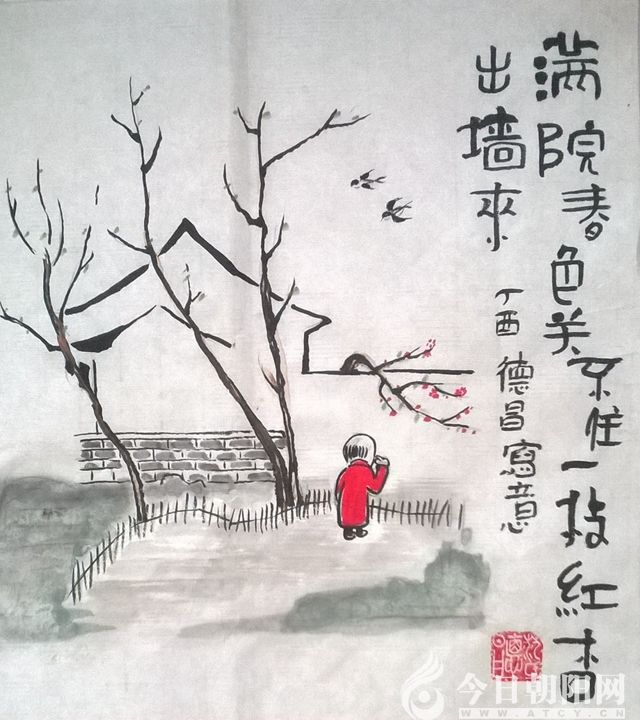 满院春色关不住一枝紅杏
出墙來
丁酉 德昌寫意
今日朝阳网
WWW.ATCY.CN